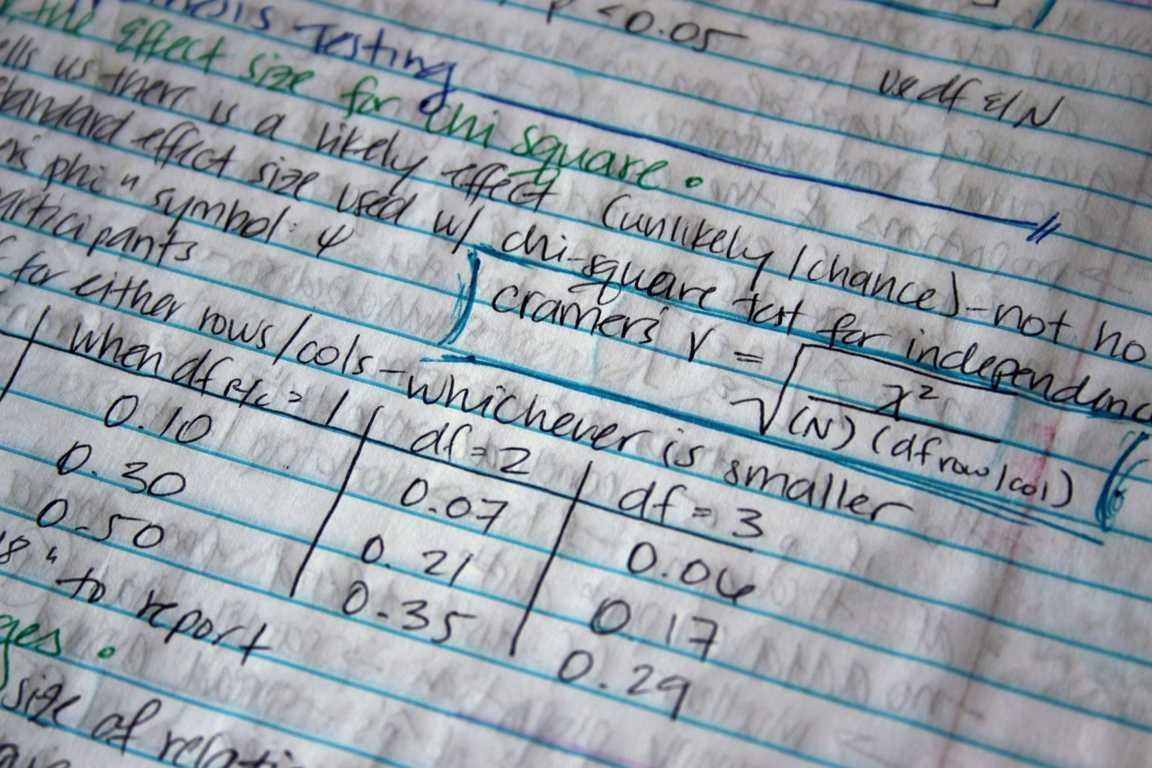 p < 0.05
use df & N
Testing
the effect size for chi square.
us there is a likely effect (unlikely / chance) - not
standard effect size used w/ chi-square test for independence
phi " symbol: φ
cramer's V = √ χ² / (N) (df row/col)
participants
for either rows/cols - whichever is smaller
when df r/c = 1 | df = 2 | df = 3
0.10 | 0.07 | 0.06
0.30 | 0.21 | 0.17
0.50 | 0.35 | 0.29
" to report
size of